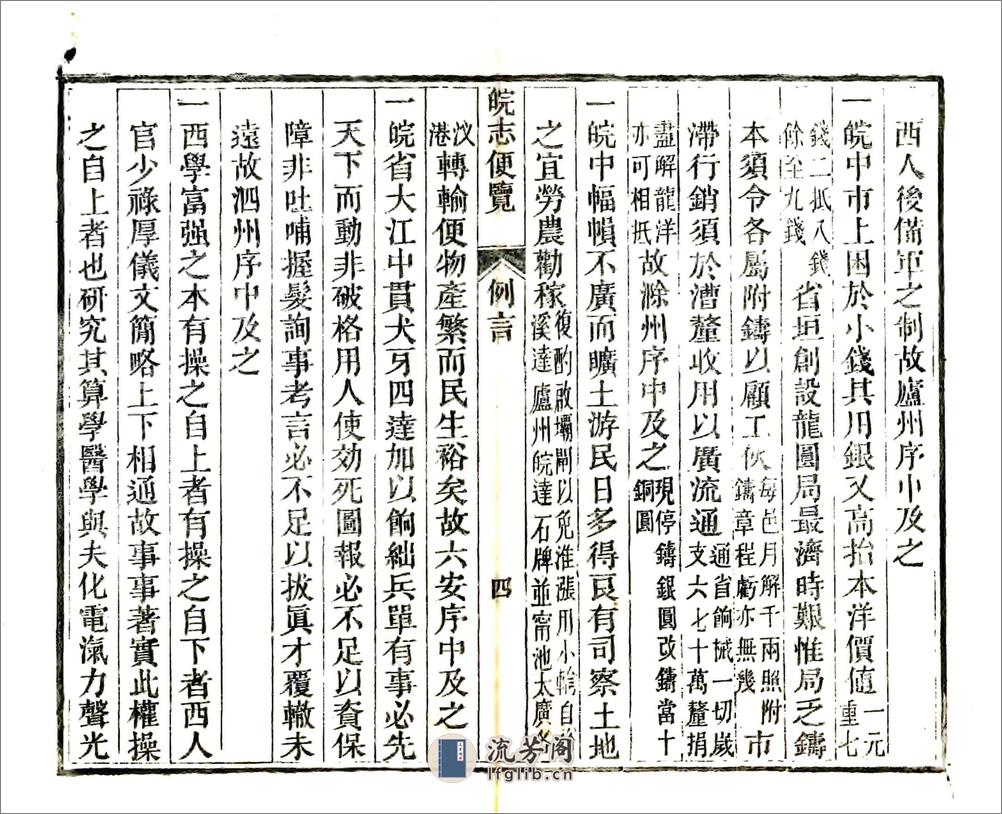 西人後備軍之制故廬州序中及之
一皖中市上困於小錢其用銀又高抬本洋價值一元重七
錢二抵八錢餘至九錢省垣創設龍圓局最濟時艱惟局乏鑄
本須令各屬附鑄以顧工伙每邑月解千兩照附鑄章程虧亦無幾市
滯行銷須於漕釐收用以廣流通通省餉械一切歲支六七十萬釐捐
盡解龍洋亦可相抵故滁州序中及之現停鑄銀圓改鑄當十銅圓
一皖中幅幀不廣而曠土游民日多得良有司察土地
之宜勞農勸稼復酌啟壩閘以免淮漲用小輪自溪達廬州皖達石牌並甯池太廣各
皖志便覽 例言 四
汊港轉輸便物產繁而民生裕矣故六安序中及之
一皖省大江中貫犬牙四達加以餉絀兵單有事必先
天下而動非破格用人使効死圖報必不足以資保
障非吐哺握髮詢事考言必不足以拔眞才覆轍未
遠故泗州序中及之
一西學富强之本有操之自上者有操之自下者西人
官少祿厚儀文簡略上下相通故事事著實此權操
之自上者也研究其算學醫學與夫化電氣力聲光
流芳阁
lfglib.cn